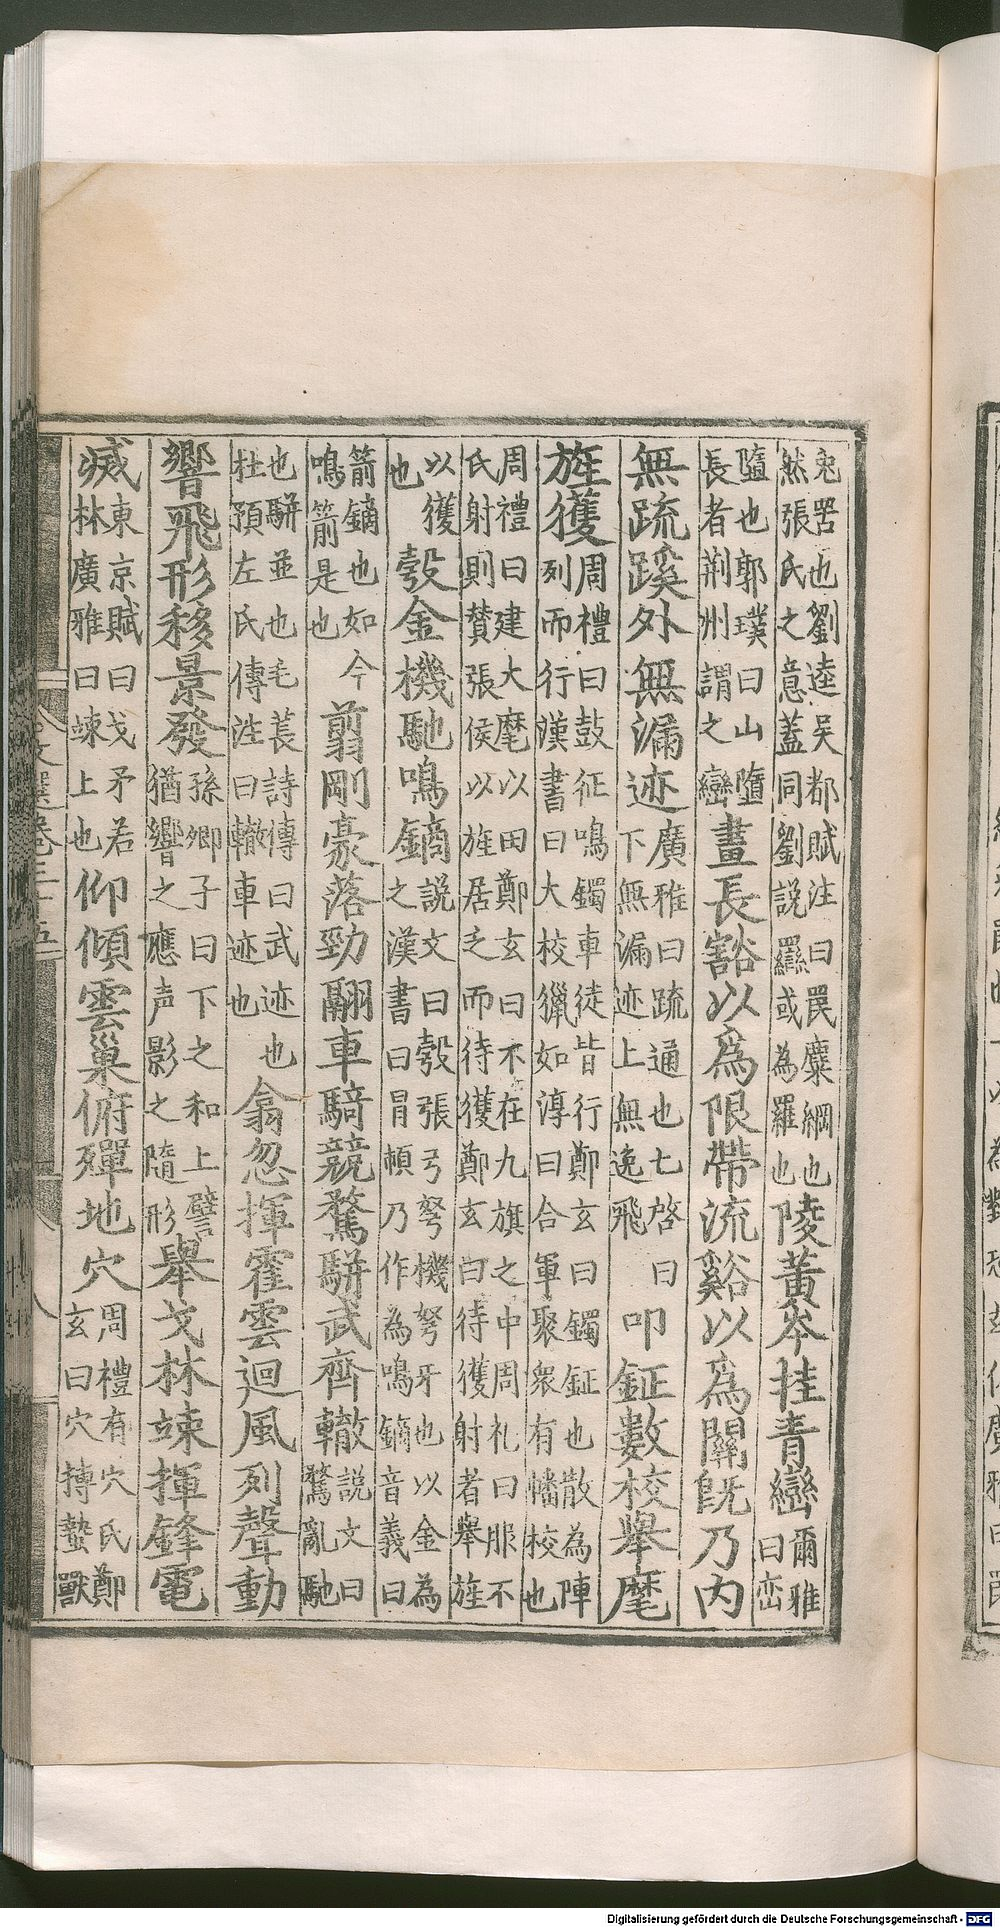 兔罟也劉逵吳都賦注曰罠麋網也
然張氏之意蓋同劉說羉或為羅也
陵黃岑挂青巒
爾雅
曰巒
隨也郭璞曰山隨
長者荆州謂之巒
畫長豁以為限帶流谿以為關旣乃內
無疏蹊外無漏迹
廣雅曰疏通也七啓曰
下無漏迹上無逸飛
叩鉦數校舉麾
旌獲
周禮曰鼓征鳴鐲車徒皆行鄭玄曰鐲鉦也散為陣
列而行漢書曰大校獵如淳曰合軍聚衆有幡校也
周禮曰建大麾以田鄭玄曰不在九旗之中周礼曰服不
氏射則贊張侯以旌居乏而待獲鄭玄曰待獲射者舉旌
以獲
也
彀金機馳鳴鏑
說文曰彀張弓弩機弩牙也以金為
之漢書曰冒頓乃作為鳴鏑音義曰
箭鏑也如今
鳴箭是也
翦剛豪落勁翮車騎競騖駢武齊轍
說文曰
騖亂馳
也駢並也毛萇詩傳曰武迹也
杜預左氏傳注曰轍車迹也
翕忽揮霍雲迴風列聲動
響飛形移景發
孫卿子曰下之和上譬
猶響之應声影之隨形
舉戈林竦揮鋒電
滅
東京賦曰戈矛若
林廣雅曰竦上也
仰傾雲巢俯殫地穴
周禮有穴氏鄭
玄曰穴搏蟄獸
文選卷三十五
八
為對
廣雅曰
Digitalisierung gefördert durch die Deutsche Forschungsgemeinschaft - DFG